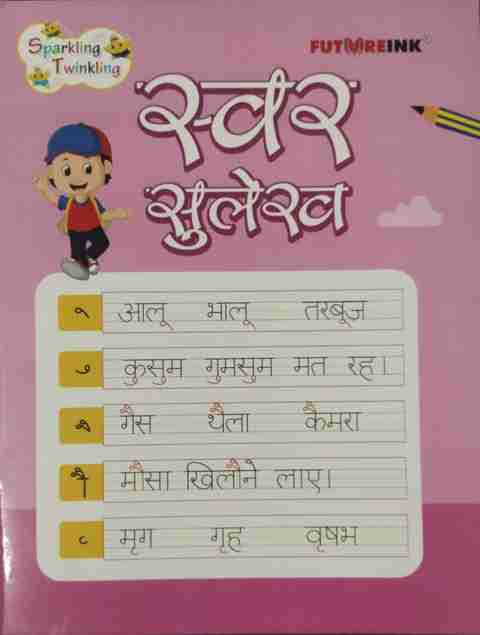 Sparkling
Twinkling
FUTUREINK
स्वर
सुलेख
ू आलू भालू तरबूज
ु कुसुम गुमसुम मत रह।
ै गैस थैला कैमरा
ौ मौसा खिलौने लाए।
ृ मृग गृह वृषभ